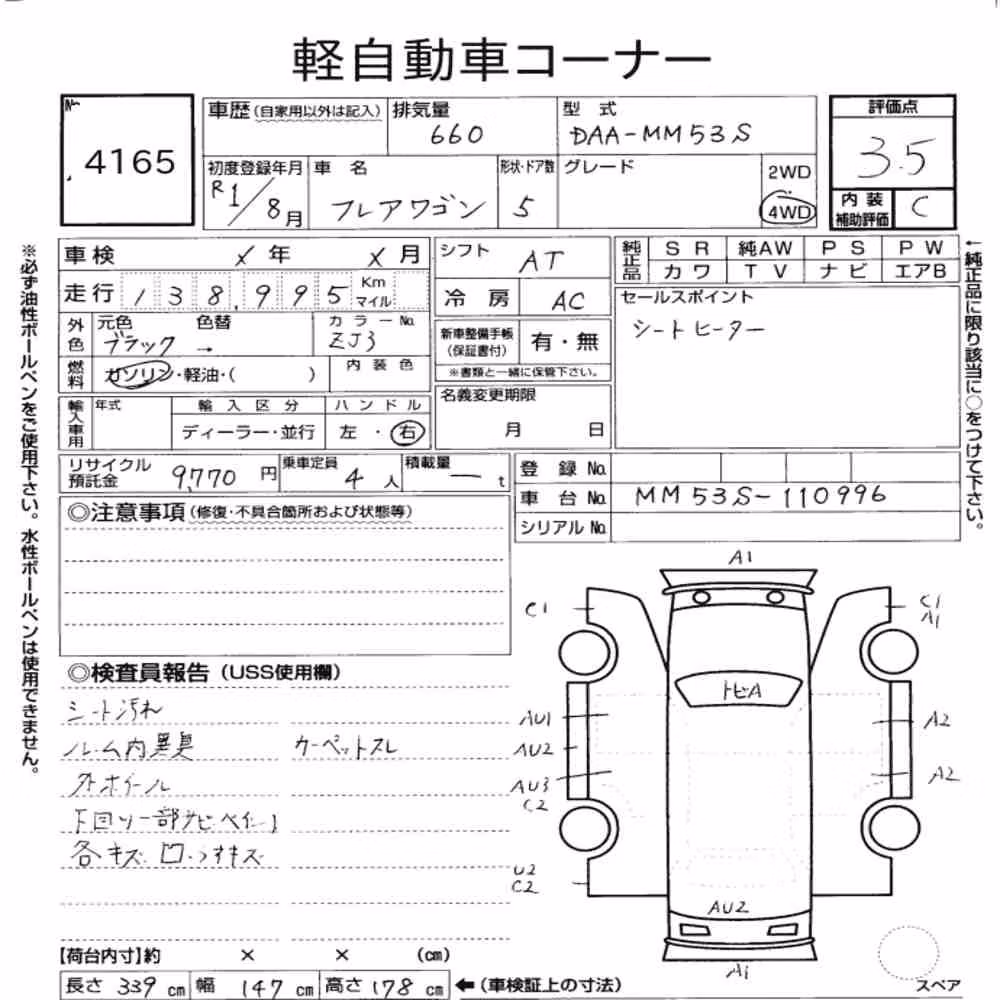 軽自動車コーナー
No. 4165
車歴(自家用以外は記入) 排気量 660 型式 DAA-MM53S 評価点 3.5
初度登録年月 R1/8月 車名 フレアワゴン 形状・ドア数 5 グレード 2WD 4WD 内装補助評価 C
車検 メ年 メ月 シフト AT 純正品 SR 純AW PS PW
カワ TV ナビ エアB
走行 138,995 Km マイル 冷房 AC セールスポイント
シートヒーター
外色 元色 ブラック → 色替 カラーNo. ZJ3 新車整備手帳(保証書付) 有・無
燃料 ガソリン・軽油・( ) 内装色 ※書類と一緒に保管下さい。
輸入車用 年式 輸入区分 ディーラー・並行 ハンドル 左・右 名義変更期限 月 日
リサイクル預託金 9,770円 乗車定員 4人 積載量 ー t 登録No.
車台No. MM53S-110996
シリアルNo.
◎注意事項(修復・不具合箇所および状態等)
◎検査員報告(USS使用欄)
シート汚れ
ルーム内異臭 カーペットスレ
外ホイール
下回り一部サビ
各キズ 凹 うすキズ
A1
C1
C1
A1
トビA
AU1
A2
AU2
AU3
C2
A2
U2
C2
AU2
A1
スペア
【荷台内寸】約 × × (cm)
長さ 339cm 幅 147cm 高さ 178cm ←(車検証上の寸法)
※必ず油性ボールペンをご使用下さい。水性ボールペンは使用できません。
←純正品に限り該当に○をつけて下さい。